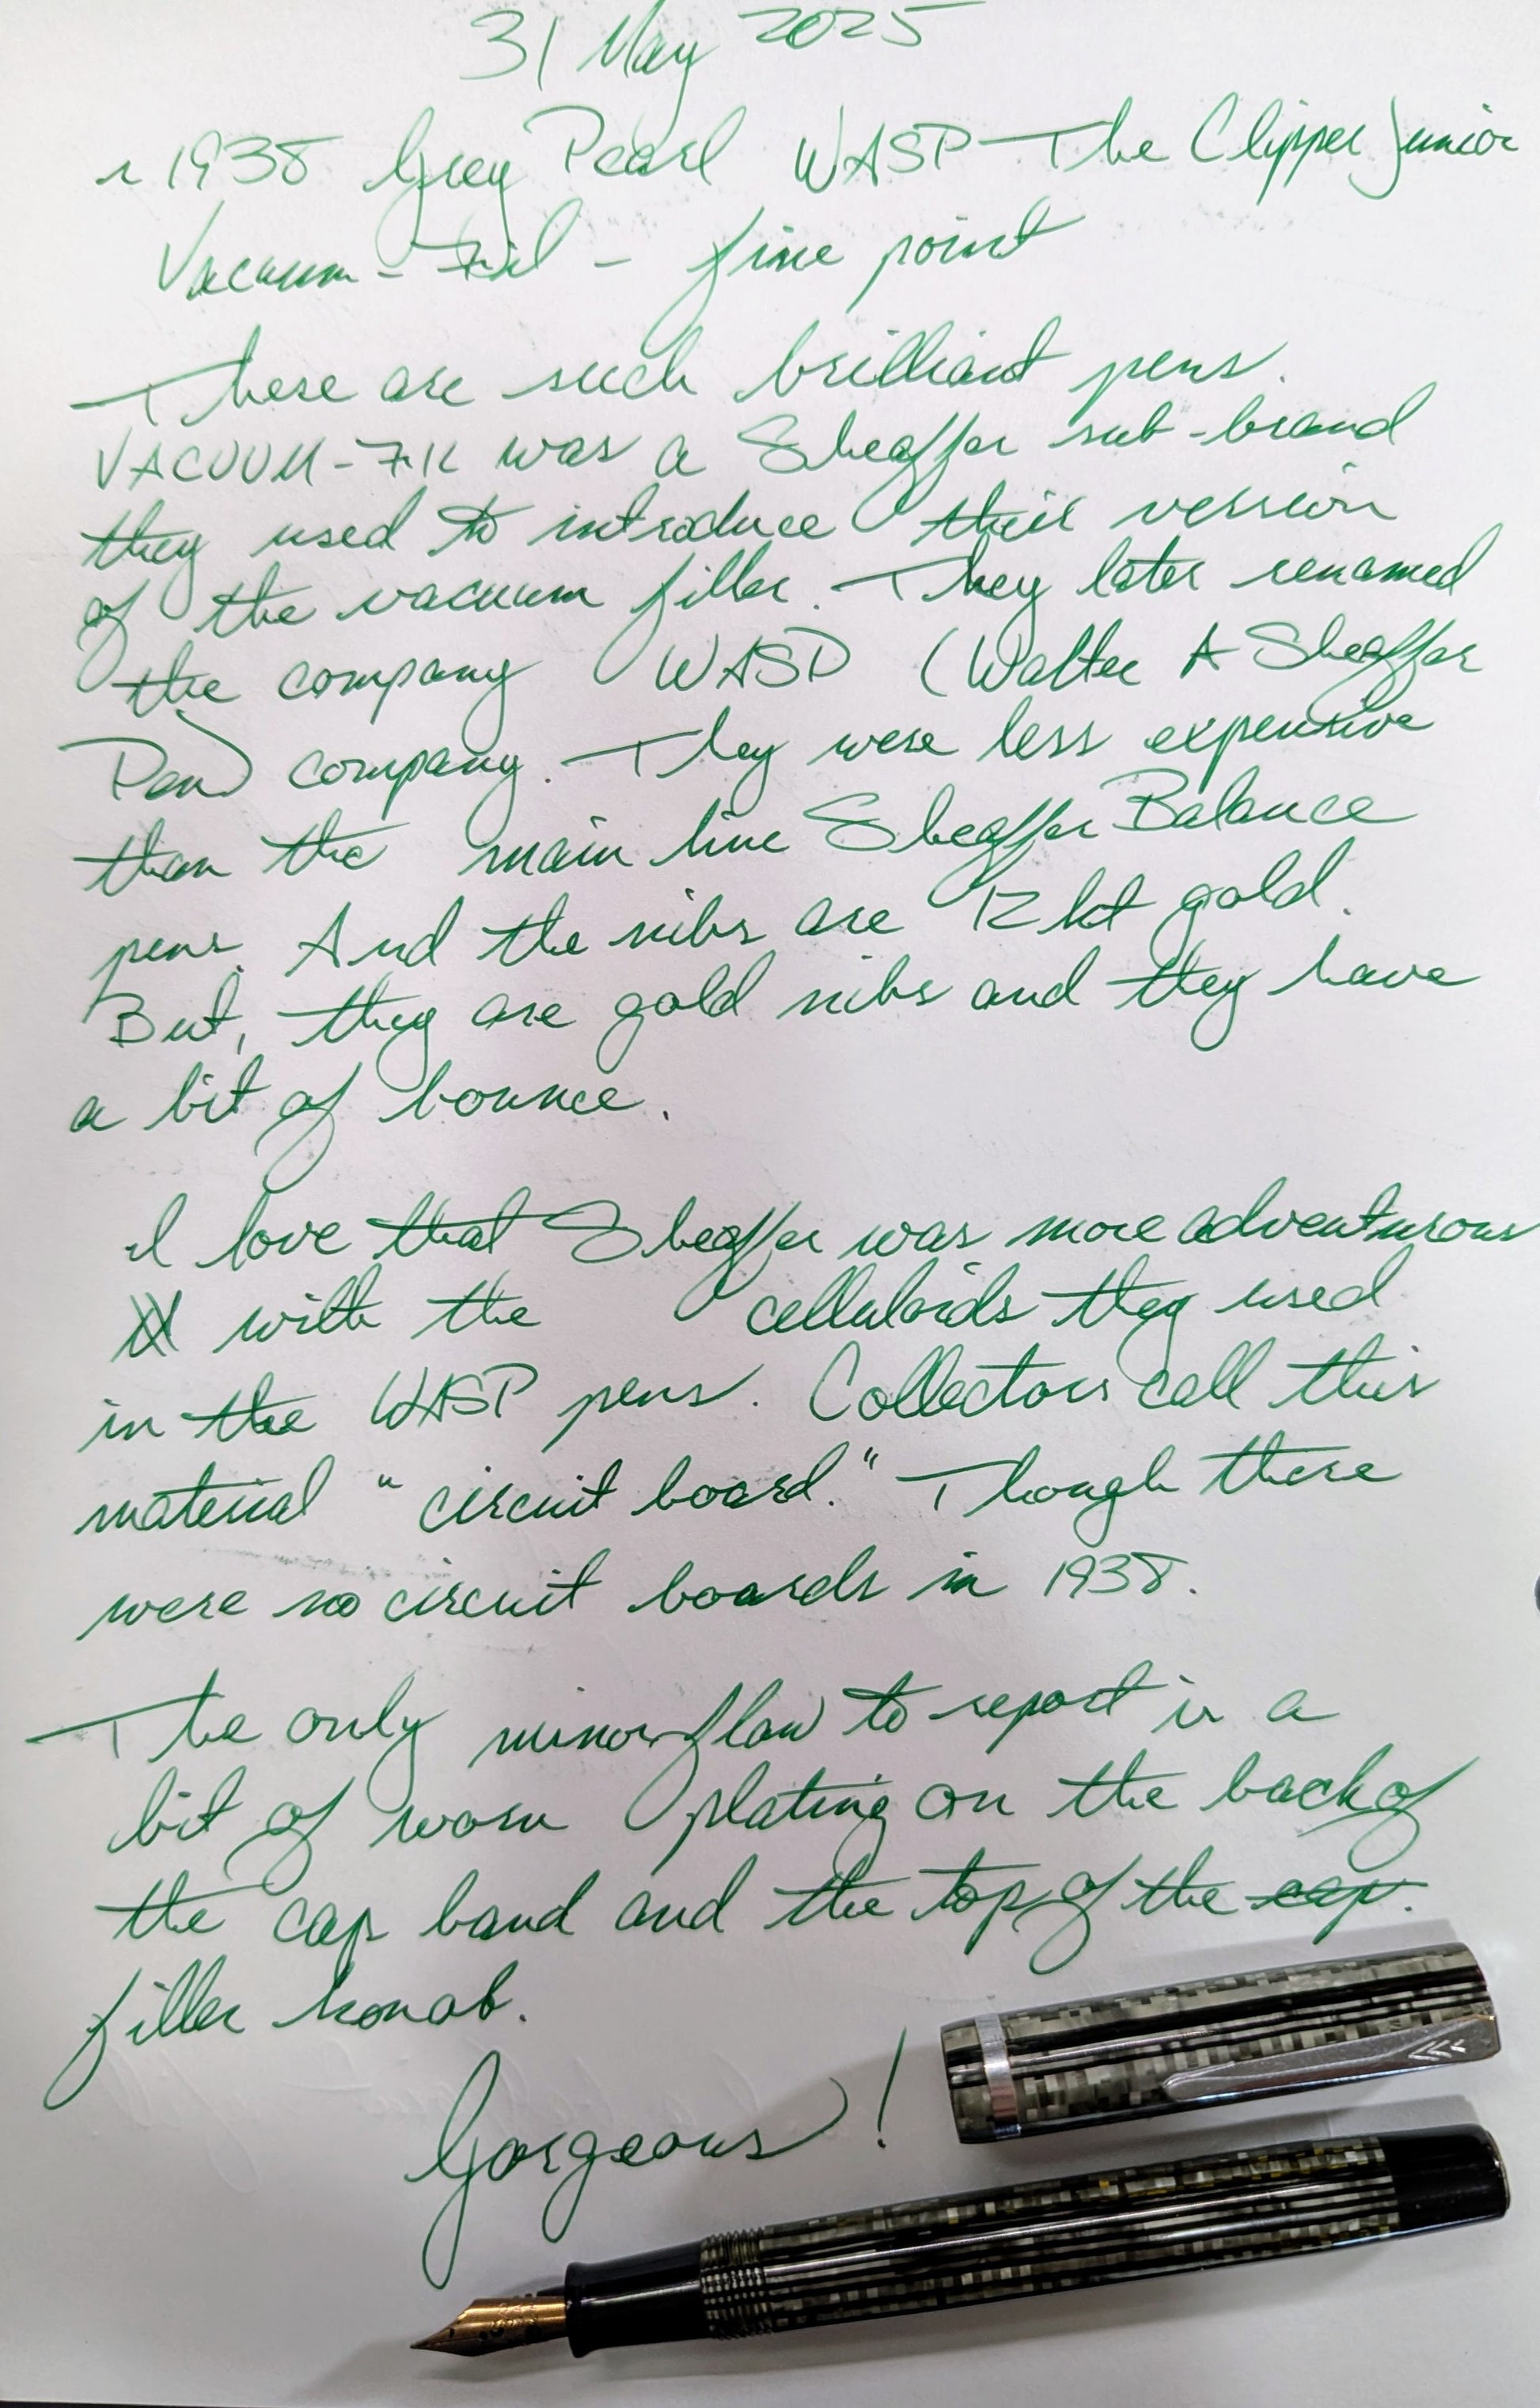 31 May 2025
~1938 Grey Pearl WASP - The Clipper Junior
Vacuum-Fil - fine point
These are such brilliant pens.
VACUUM-FIL was a Sheaffer sub-brand
they used to introduce their version
of the vacuum filler. They later renamed
the company WASP (Walter A Sheaffer
Pen) company. They were less expensive
than the main line Sheaffer Balance
pens. And the nibs are 12 kt gold.
But, they are gold nibs and they have
a bit of bounce.
I love that Sheaffer was more adventurous
with the celluloids they used
in the WASP pens. Collectors call this
material "circuit board." Though there
were no circuit boards in 1938.
The only minor flaw to report is a
bit of worn plating on the back of
the cap band and the top of the cap.
filler konob.
Gorgeous!